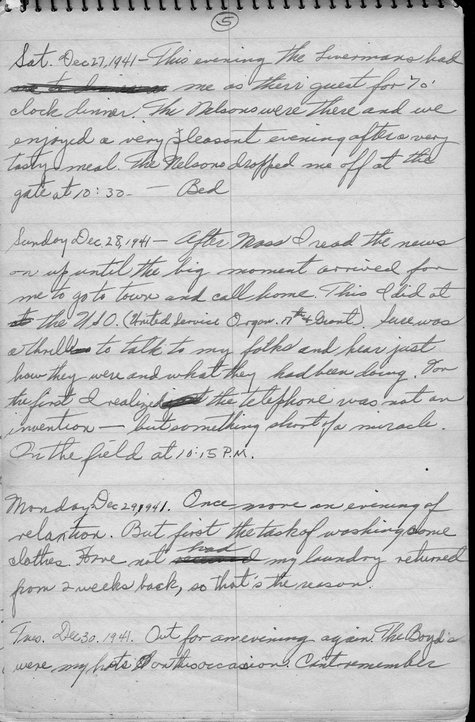 5
Sat. Dec 27, 1941 - This evening the Livermans had
me as their guest for 7 o'
clock dinner. The Nelsons were there and we
enjoyed a very pleasant evening after a very
tasty meal. The Nelsons dropped me off at the
gate at 10:30 - — Bed
Sunday Dec 28, 1941 - After Mass I read the news
on up until the big moment arrived for
me to go to town and call home. This I did at
the USO. (United Service Organ. 17th & Grant). Sure was
a thrill to talk to my folks and hear just
how they were and what they had been doing. For
the first I realized the telephone was not an
invention — but something short of a miracle.
On the field at 10:15 P.M.
Monday Dec 29, 1941. Once more an evening of
relaxtion. But first the task of washing some
clothes. I've not had my laundry returned
from 2 weeks back, so that's the reason.
Tues. Dec 30, 1941. Out for an evening again. The Boyd's
were my hosts on this occasion. Can't remember